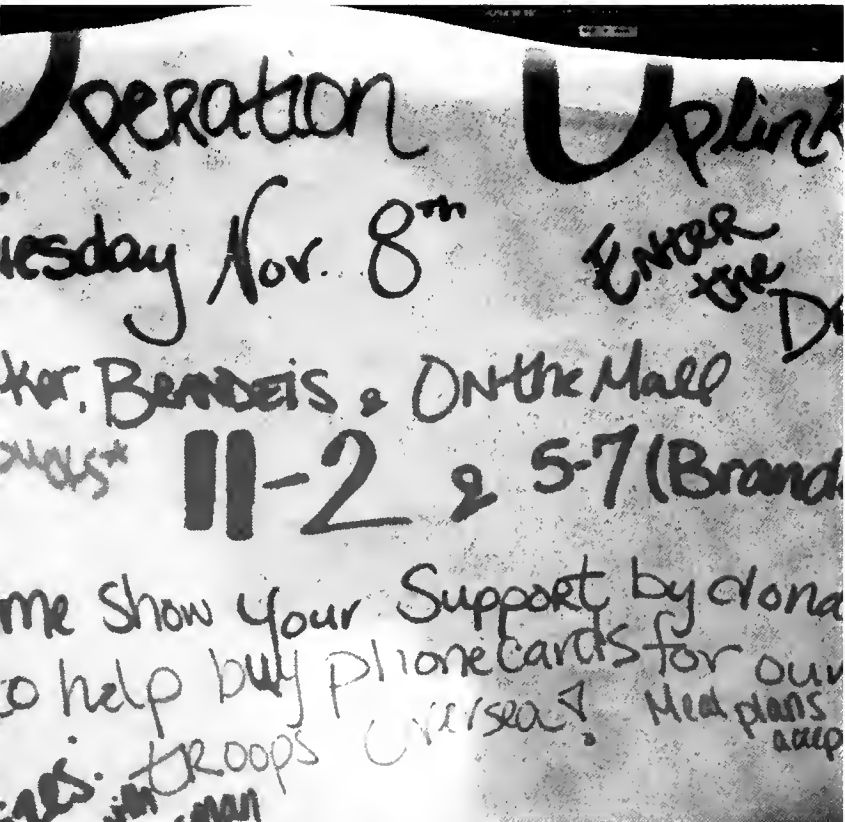 Operation Uplink
uesday Nov. 8th
ENTER
the
D
ker, BRANDEIS & ON the Mall
11-2 & 5-7 (Brand
me Show your Support by dona
to help buy phonecards for our
troops oversea! Meal plans
accep
man